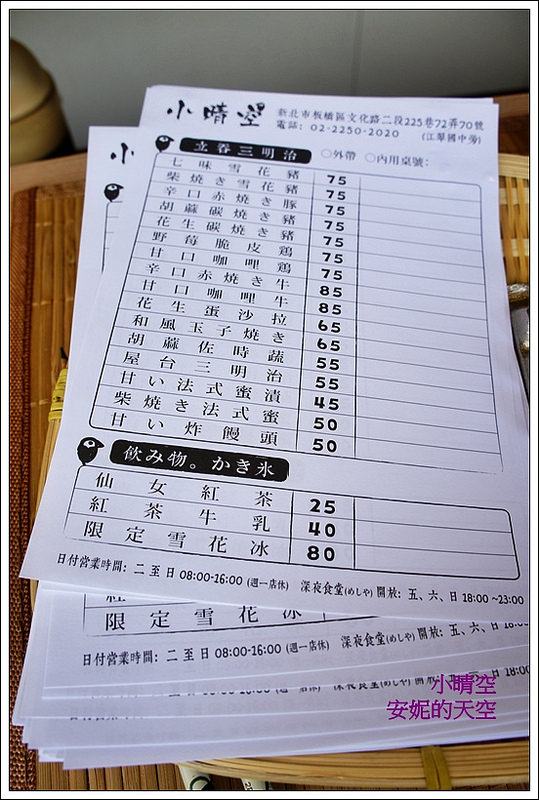 小晴空
新北市板橋區文化路二段225巷72弄70號
電話：02-2250-2020 (江翠國中旁)
立香三明治 ○外帶 ○內用桌號：
七味雪花豬 75
柴燒き雪花豬 75
辛口赤燒き豚 75
胡麻碳燒き豬 75
花生碳燒き豬 75
野莓脆皮鶏 75
甘口咖哩鶏 75
辛口赤燒き牛 85
甘口咖哩牛 85
花生蛋沙拉 65
和風玉子燒き 65
胡麻佐時蔬 55
屋台三明治 55
甘い法式蜜漬 45
柴燒き法式蜜 50
甘い炸饅頭 50
飲み物。かき氷
仙女紅茶 25
紅茶牛乳 40
限定雪花冰 80
日付営業時間：二至日08:00-16:00 (週一店休) 深夜食堂(めしや) 開放：五、六、日18:00~23:00
小
紅
限定雪花冰
日付営業時間：二至日08:00-16:00 (週一店休) 深夜食堂(めしや) 開放：五、六、日18:00
小晴空
安妮的天空